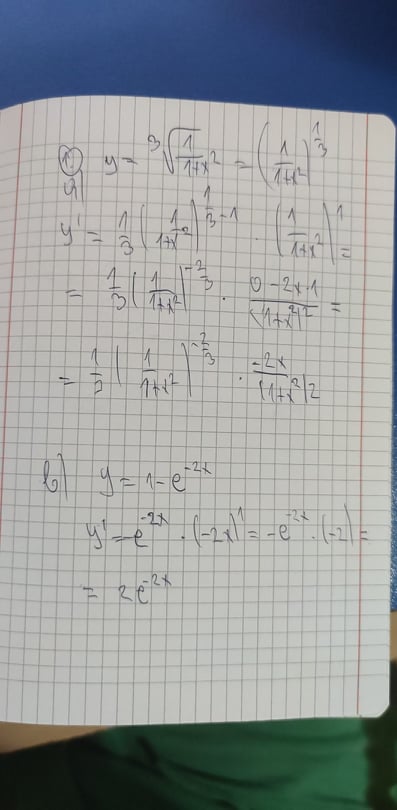 1. y = ∛(1/(1+x²)) = (1/(1+x²))^(1/3)
a)
y' = 1/3 (1/(1+x²))^(1/3 - 1) · (1/(1+x²))' =
= 1/3 (1/(1+x²))^(-2/3) · (0 - 2x·1)/(1+x²)² =
= 1/3 (1/(1+x²))^(-2/3) · (-2x)/(1+x²)2
b) y = 1 - e^(-2x)
y' = -e^(-2x) · (-2x)' = -e^(-2x) · (-2) =
= 2e^(-2x)